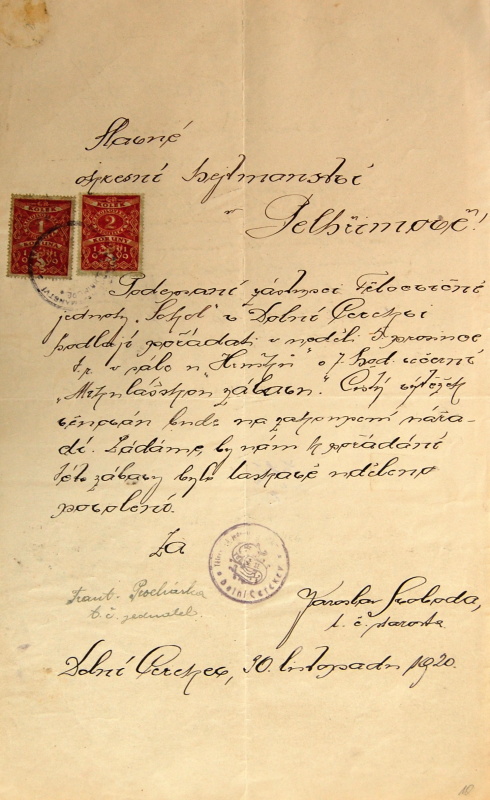 Slavné
okresní hejtmanství
v
Pelhřimově!
KOLEK
1
KORUNA
KOLEK
2
KORUNY
Podepsaní zástupci Tělocvičné
jednoty „Sokol" v Dolní Cerekvi
hodlají pořádati v neděli 5. prosince
t. r. v sále u „ o 7. hod. večerní
„Mikulášskou zábavu". Čistý výtěžek
věnován bude na zakoupení nářa-
dí. Žádáme, by nám k pořádání
této zábavy bylo laskavě uděleno
povolení.
Za
Dolní Cerekev
Frant. Procházka
t. č. jednatel.
Jaroslav Svoboda,
t. č. starosta
Dolní Cerekev, 30. listopadu 1920.
10